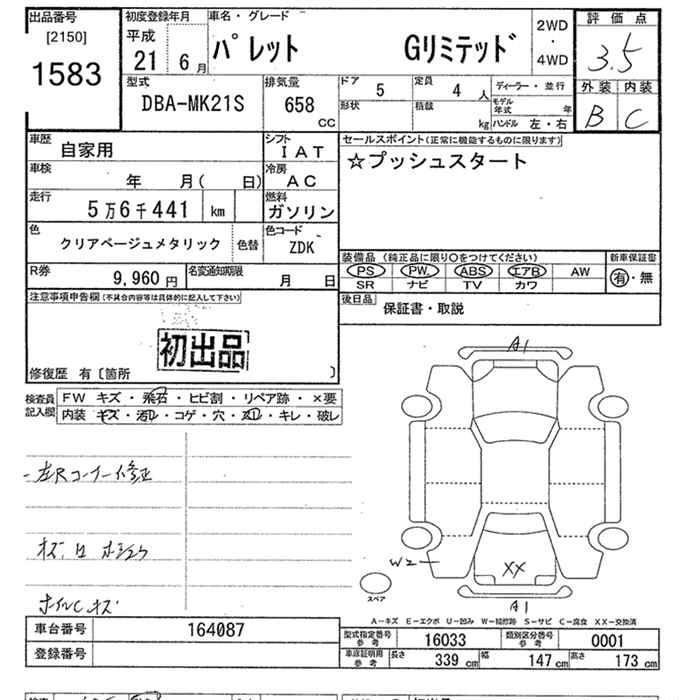 出品番号
[2150]
1583
初度登録年月
平成
21 6月
車名・グレード
パレット Gリミテッド
2WD
・
4WD
評価点
3.5
外装 内装
B C
型式
DBA-MK21S
排気量
658 cc
ドア
5
定員
4 人
形状
積載
kg
ディーラー・並行
モデル年式 年
ハンドル 左・右
車歴
自家用
シフト
IAT
車検
年 月( 日)
冷房
AC
走行
5万6千441 km
燃料
ガソリン
色
クリアベージュメタリック
色替
色コード
ZDK
R券
9,960 円
名変通知期限
月 日
セールスポイント(正常に機能するものに限ります)
☆プッシュスタート
装備品 (純正品に限り○をつけてください)
PS PW ABS エアB AW
SR ナビ TV カワ
新車保証書
有・無
後日品
保証書・取説
注意事項申告欄(不具合内容等は具体的に記入して下さい)
初出品
修復歴 有〔箇所 〕
検査員記入欄
FW キズ・飛石・ヒビ割・リペア跡・×要
内装・キズ・汚れ・コゲ・穴・スレ・キレ・破レ
左Rコーナー修正
ホイルCキズ
A1
W2
XX
A1
スペア
A-キズ E-エクボ U-凹み W-補修跡 S-サビ C-腐食 XX-交換済
車台番号
164087
登録番号
型式指定番号参考
16033
類別区分番号参考
0001
車庫証明用参考
長さ 339 cm
幅 147 cm
高さ 173 cm